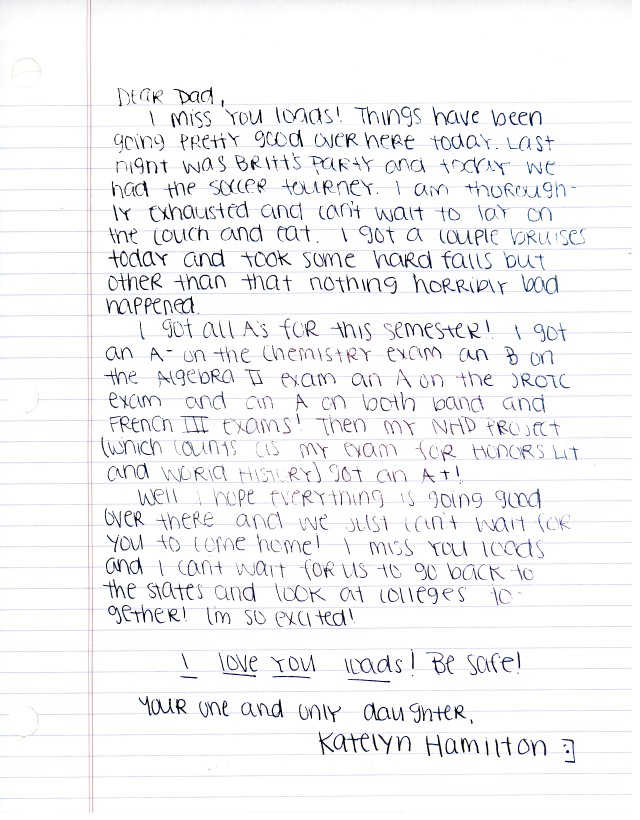 Dear Dad,
I miss you loads! Things have been
going pretty good over here today. Last
night was Britt's party and today we
had the soccer tourney. I am thorough-
ly exhausted and can't wait to lay on
the couch and eat. I got a couple bruises
today and took some hard falls but
other than that nothing horribly bad
happened.
I got all A's for this semester! I got
an A- on the Chemistry exam an B on
the Algebra II exam an A on the JROTC
exam and an A on both band and
French III exams! Then my NHD project
(which counts as my exam for Honors Lit
and World History) got an A+!
Well I hope everything is going good
over there and we just can't wait for
you to come home! I miss you loads
and I can't wait for us to go back to
the states and look at colleges to-
gether! I'm so excited!
I love you loads! Be safe!
Your one and only daughter,
Katelyn Hamilton :]